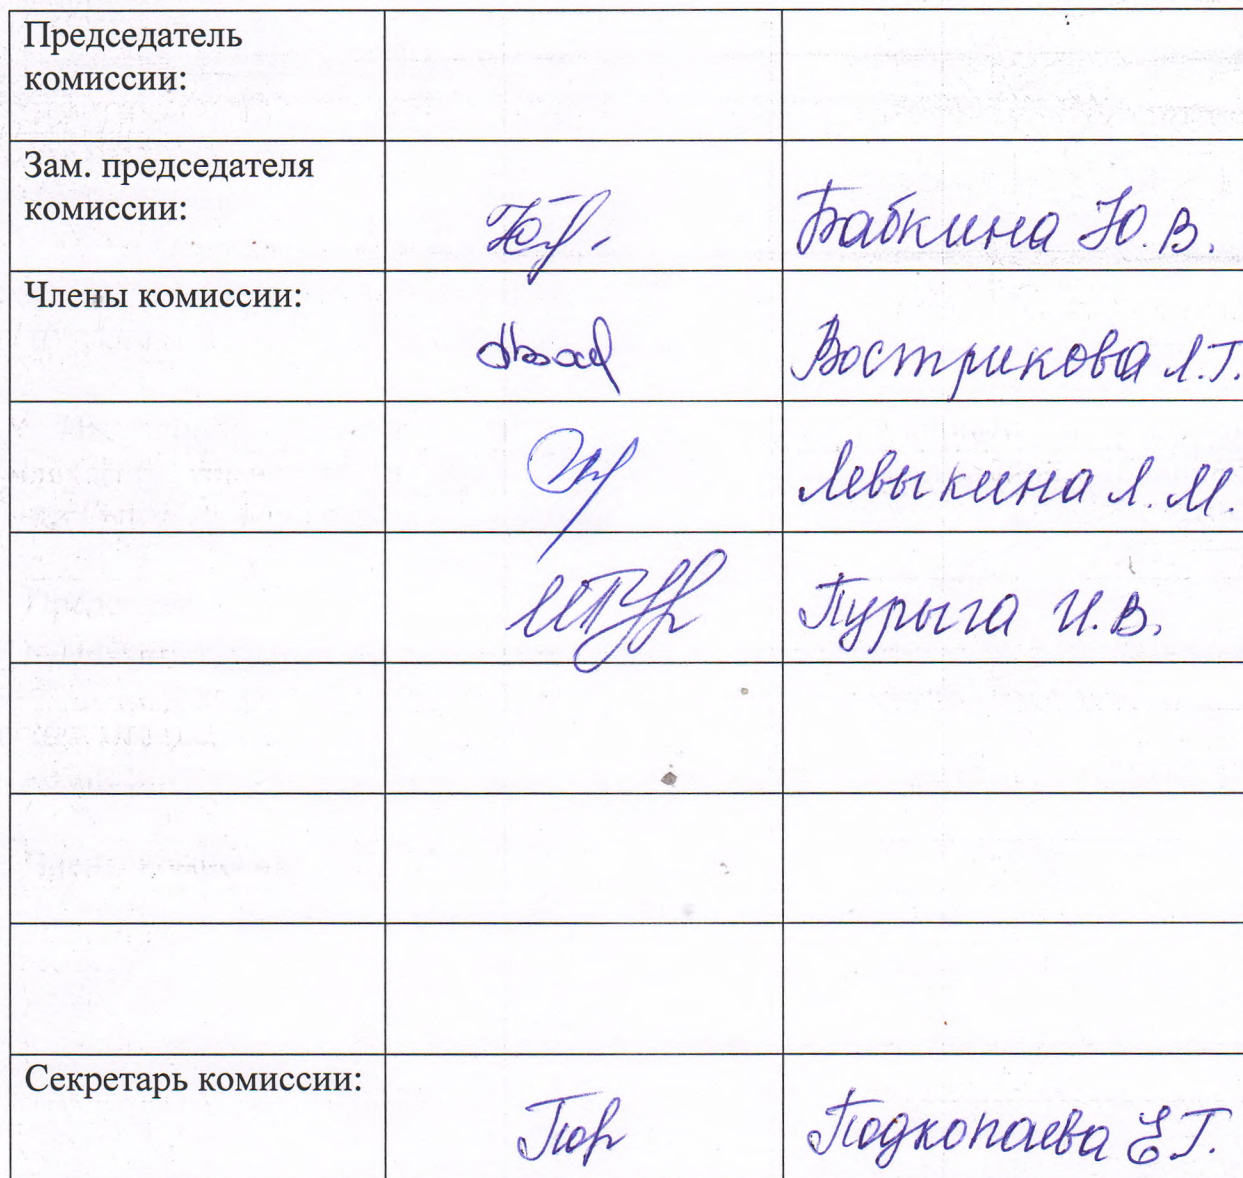 Председатель
комиссии:
Зам. председателя
комиссии:
Бабкина Ю. В.
Члены комиссии:
Вострикова Л.Г.
Левыкина Л. М.
Пурыга И. В.
Секретарь комиссии:
Подкопаева Е.Г.